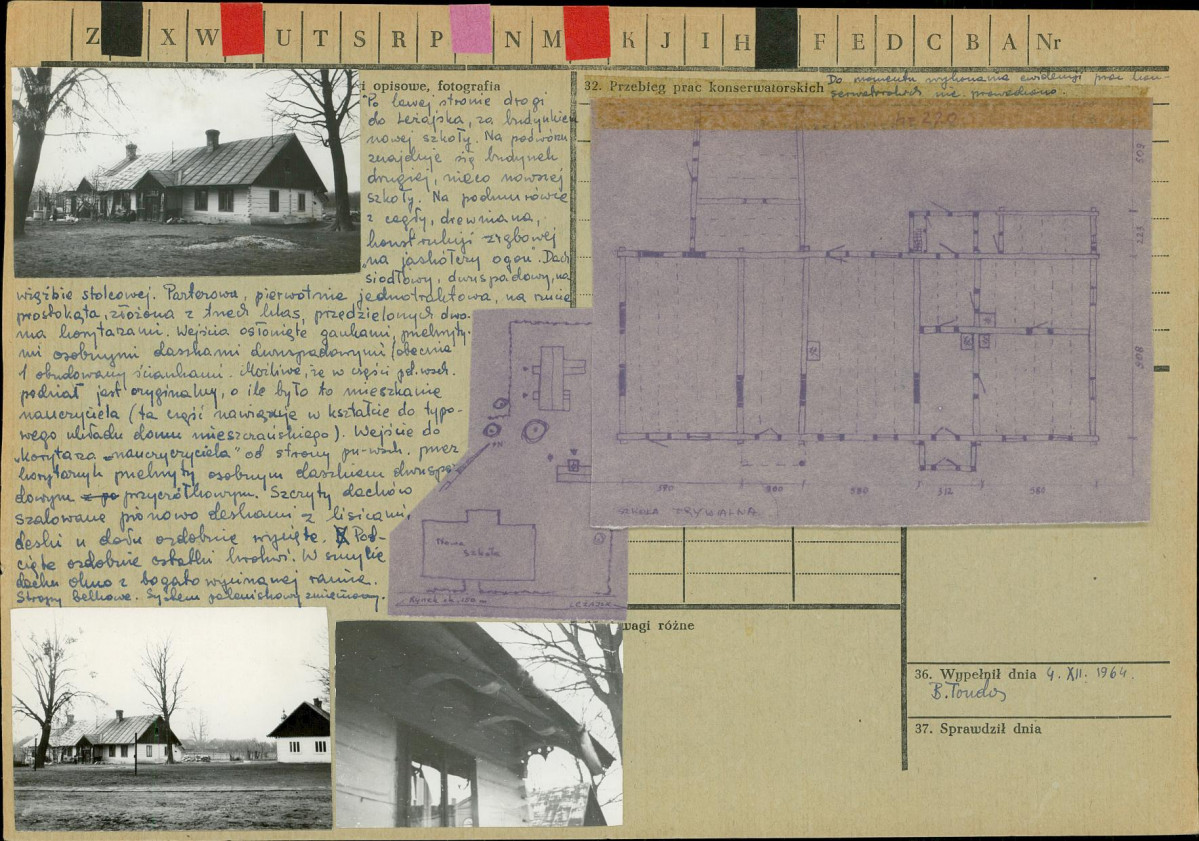 Z X W U T S R P N M K J I H F E D C B A Nr
i opisowe, fotografia
Po lewej stronie drogi
do Leżajska, za budynkiem
nowej szkoły. Na podwórzu
znajduje się budynek
drugiej, nieco nowszej
szkoły. Na podmurówce
z cegły, drewniana,
konstrukcji zrębowej
„na jaskółczy ogon". Dach
siodłowy, dwuspadowy, na
więźbie stolcowej. Parterowa, pierwotnie jednotraktowa, na rzucie
prostokąta, złożona z trzech klas, przedzielonych dwo-
ma korytarzami. Wejścia osłonięte gankami, nakryty-
mi osobnymi daszkami dwuspadowymi /obecnie
1 obudowany ściankami. Możliwe, że w części pd.wsch.
podział jest oryginalny, o ile było to mieszkanie
nauczyciela (ta część nawiązuje w kształcie do typo-
wego układu domu mieszczańskiego). Wejście do
„korytarza nauczyciela" od strony pn-wsch. przez
korytarzyk nakryty osobnym daszkiem dwuspa-
dowym przyczółkowym. Szczyty dachów
szalowane pionowo deskami z lisicami,
deski u dołu ozdobnie wycięte. Pod-
cięte ozdobnie ostatki krokwi. W szczycie
dachu okno z bogato wycinanej ramie.
Stropy belkowe. System paleniskowy zmieniony.
32. Przebieg prac konserwatorskich
Do momentu wykonania ewidencji prac kon-
serwatorskich nie prowadzono.
509
225
508
590 200 580 312 580
SZKOŁA TRYWALNA
Nowa
szkoła
Rynek ok. 150 m
LEŻAJSK
wagi różne
36. Wypełnił dnia 4. XII. 1964.
B. Tondos
37. Sprawdził dnia